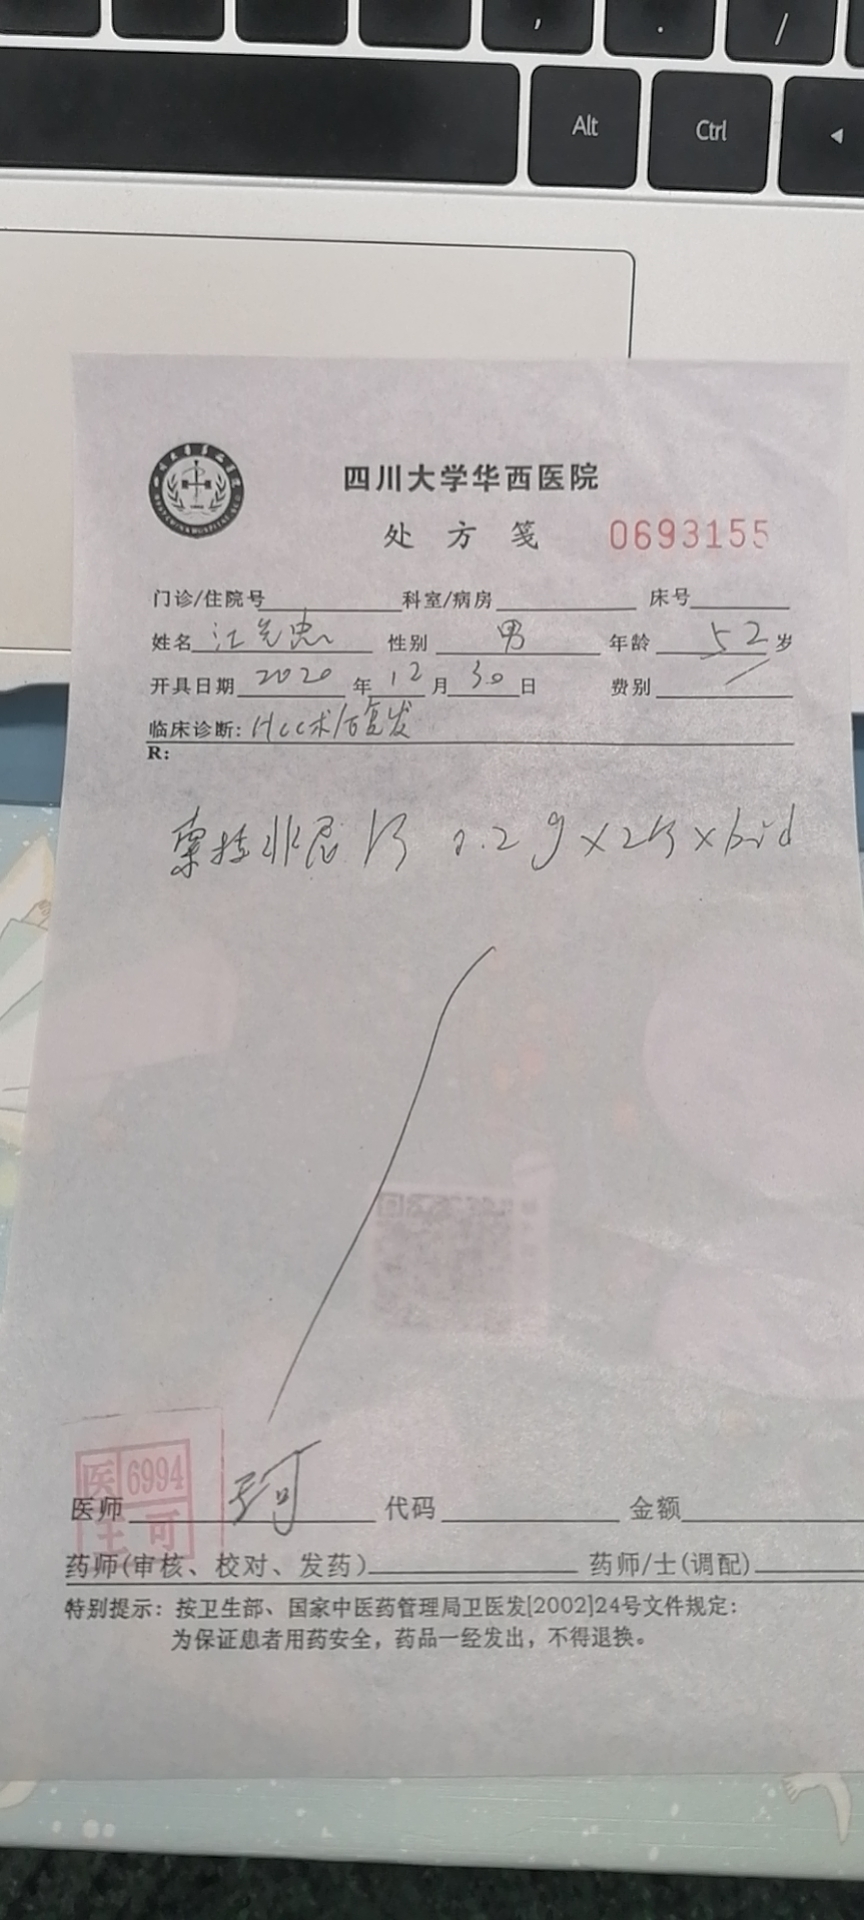 ,
.
/
Alt
Ctrl
四川大学华西医院
处方笺 0693155
门诊/住院号 科室/病房 床号
姓名 江先忠 性别 男 年龄 52 岁
开具日期 2020 年 12 月 30 日 费别 /
临床诊断: HCC术后复发
R:
索拉非尼片 0.2g×2片×bid
医 6994
王可
医师 王可 代码 金额
药师(审核、校对、发药) 药师/士(调配)
特别提示: 按卫生部、国家中医药管理局卫医发[2002]24号文件规定:
为保证患者用药安全,药品一经发出,不得退换。